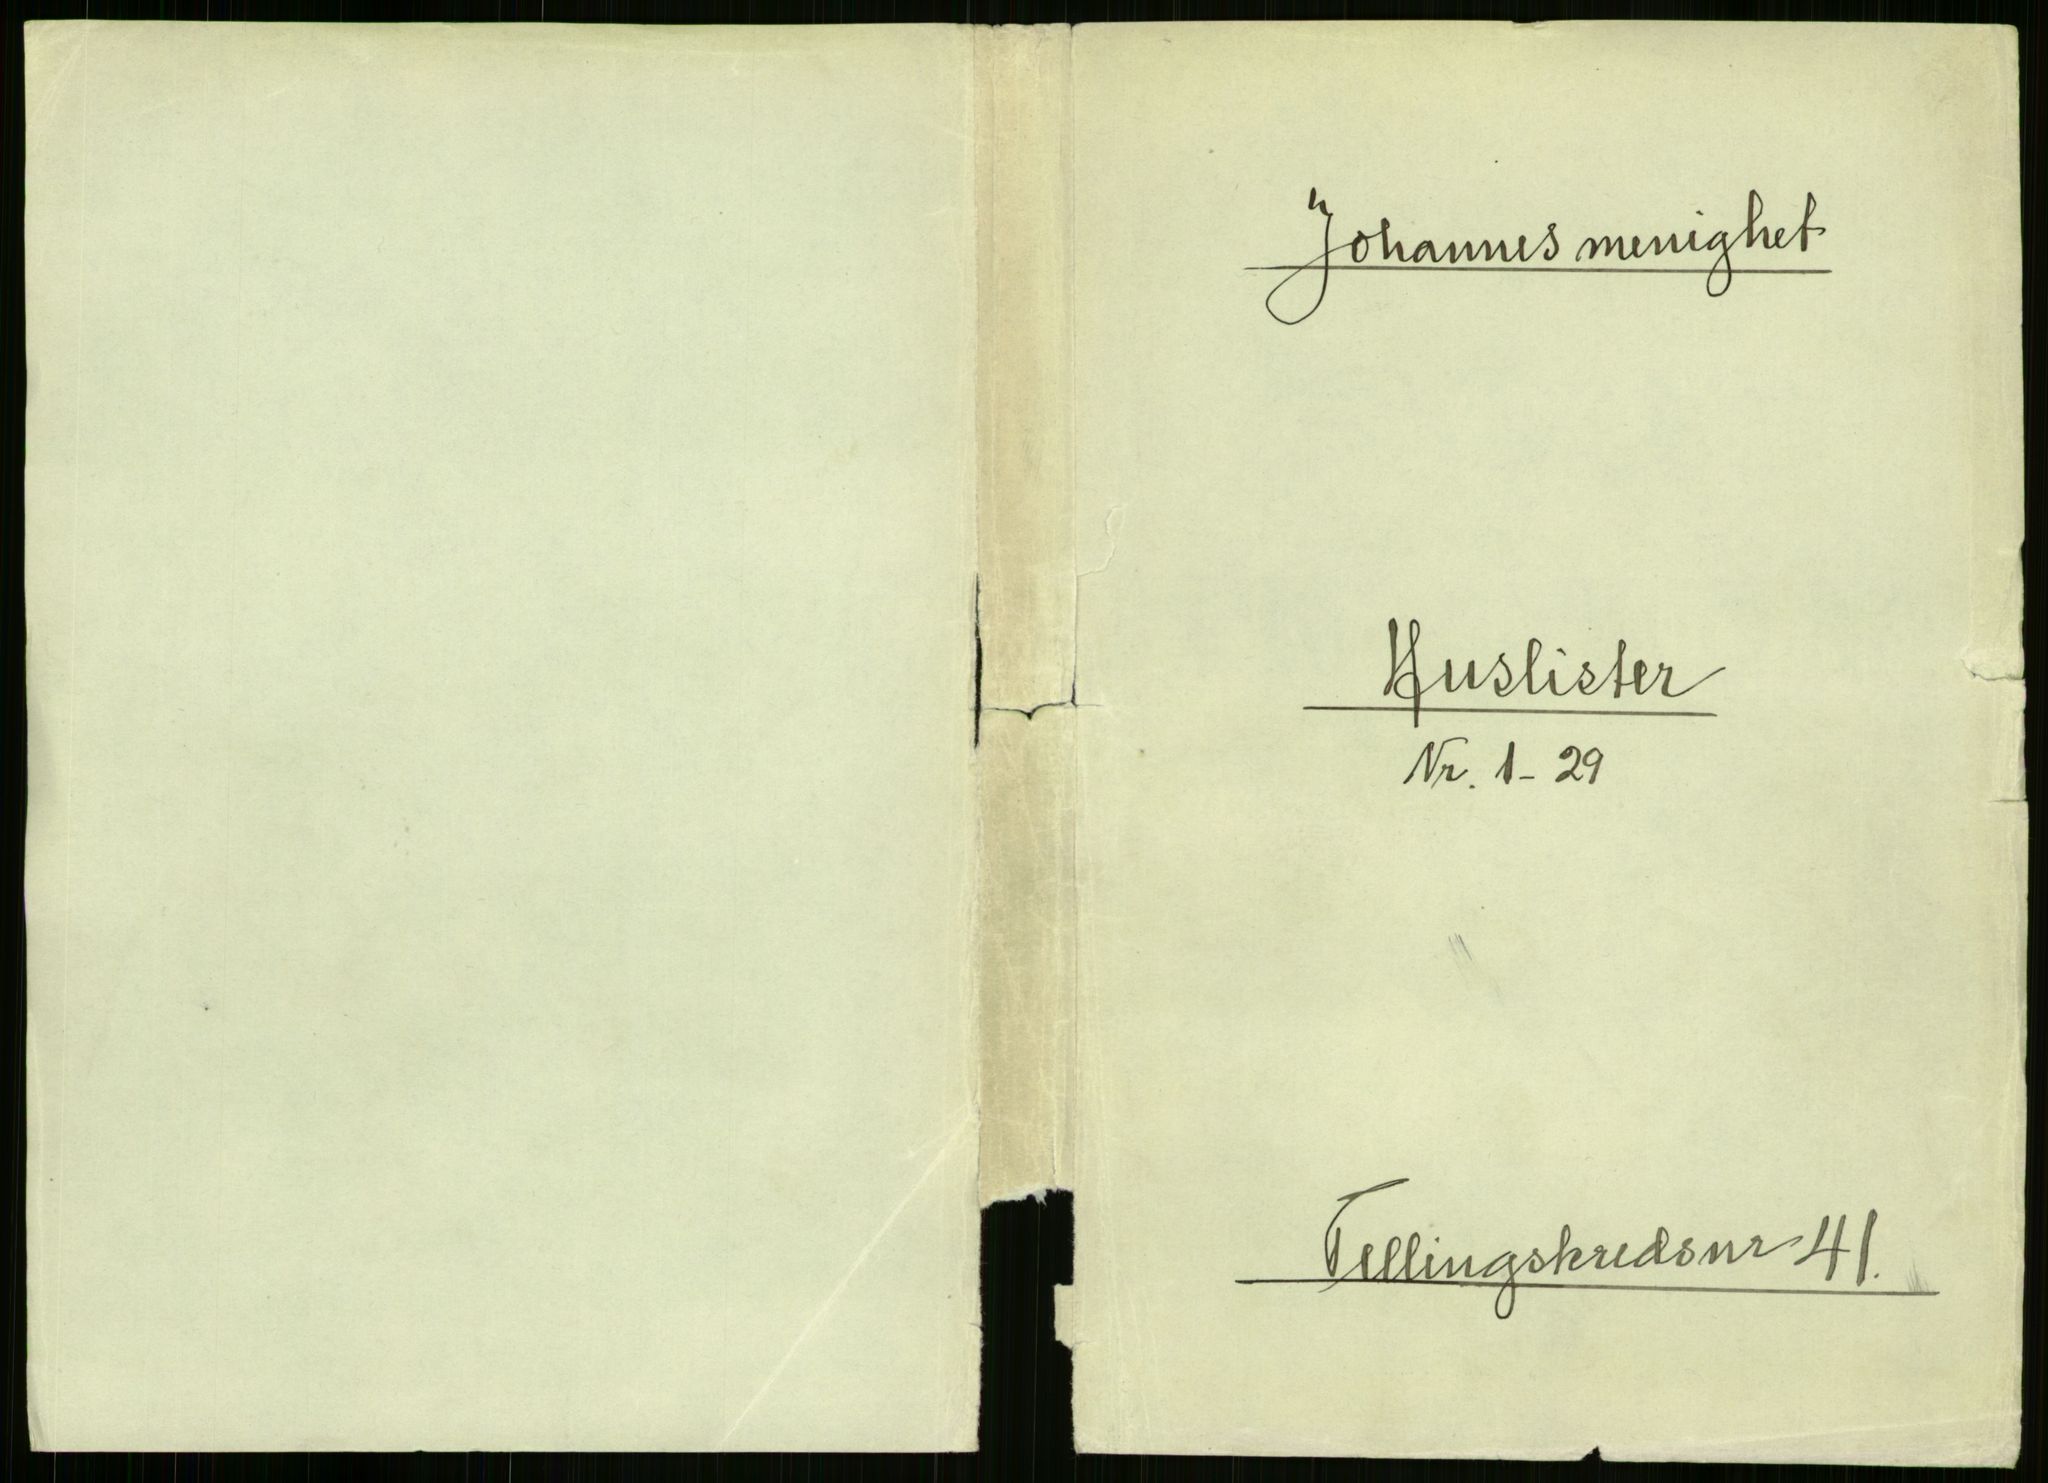 Johannes menighet
Huslister
Nr. 1-29
Tellingskredsnr 41.